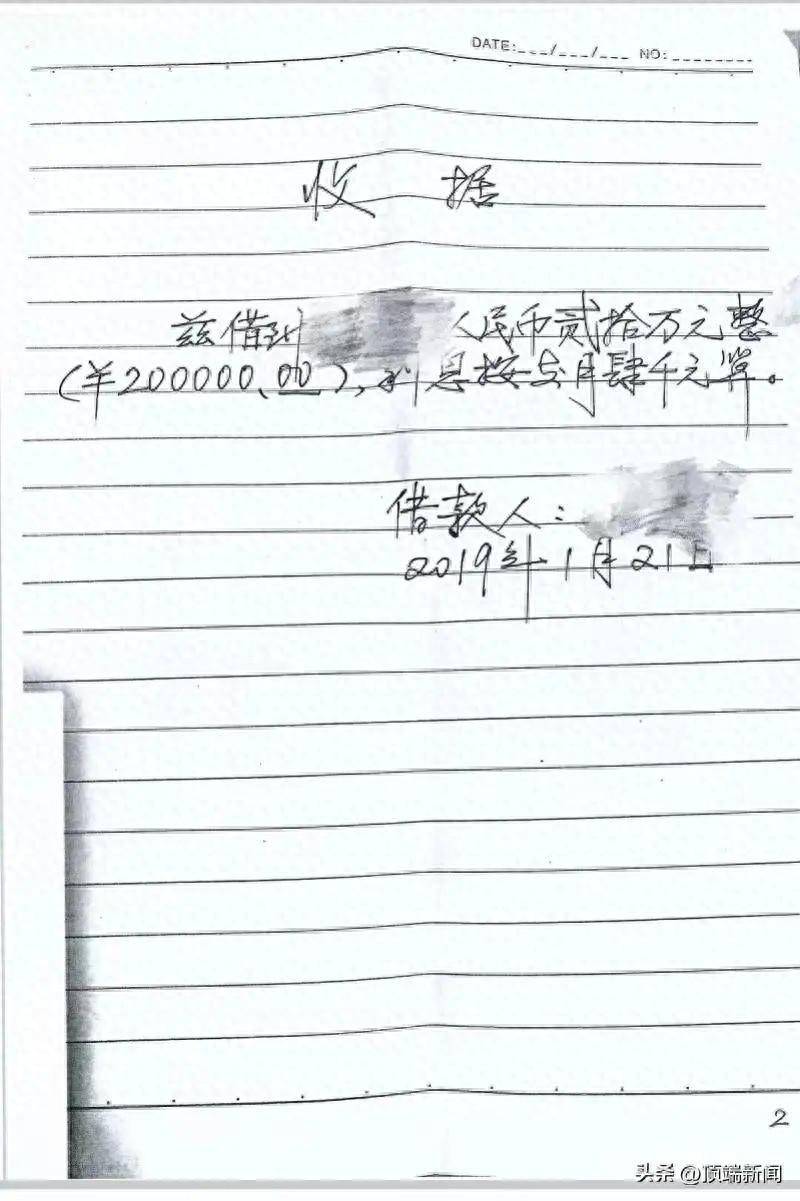 DATE:___/___/___ NO:________
收 据
兹借到 人民币贰拾万元整
(¥200000.00),利息按每月肆千元算。
借款人:
2019年1月21日
2
头条 @顶端新闻